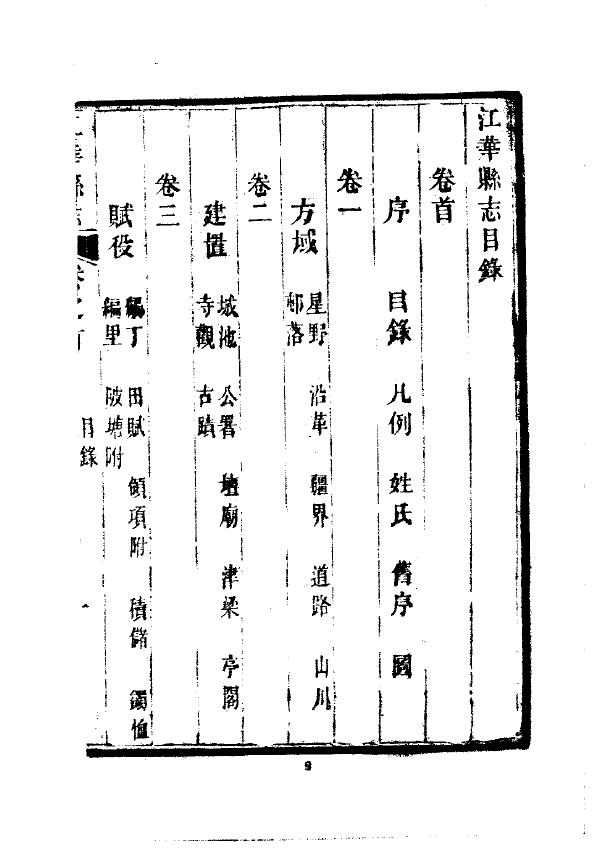 江華縣志目錄
卷首
序 目錄 凡例 姓氏 舊序 圖
卷一
方域 星野 沿革 疆界 道路 山川
邨落
卷二
建置 城池 公署 壇廟 津梁 亭閣
寺觀 古蹟
卷三
賦役 編丁 田賦 領項附 積儲 蠲恤
編里 陂塘附
江華縣志 卷之首 目錄 一
9